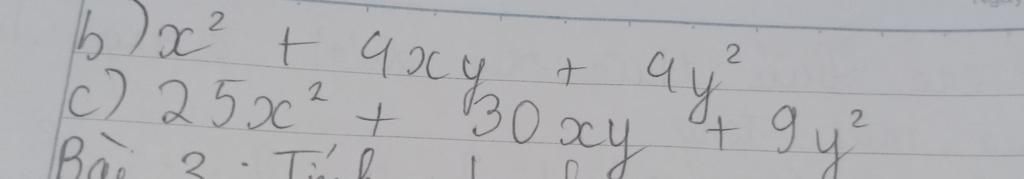 b) x² + 4xy + 4y²
c) 25x² + 30xy + 9y²
Bài 3: Tính